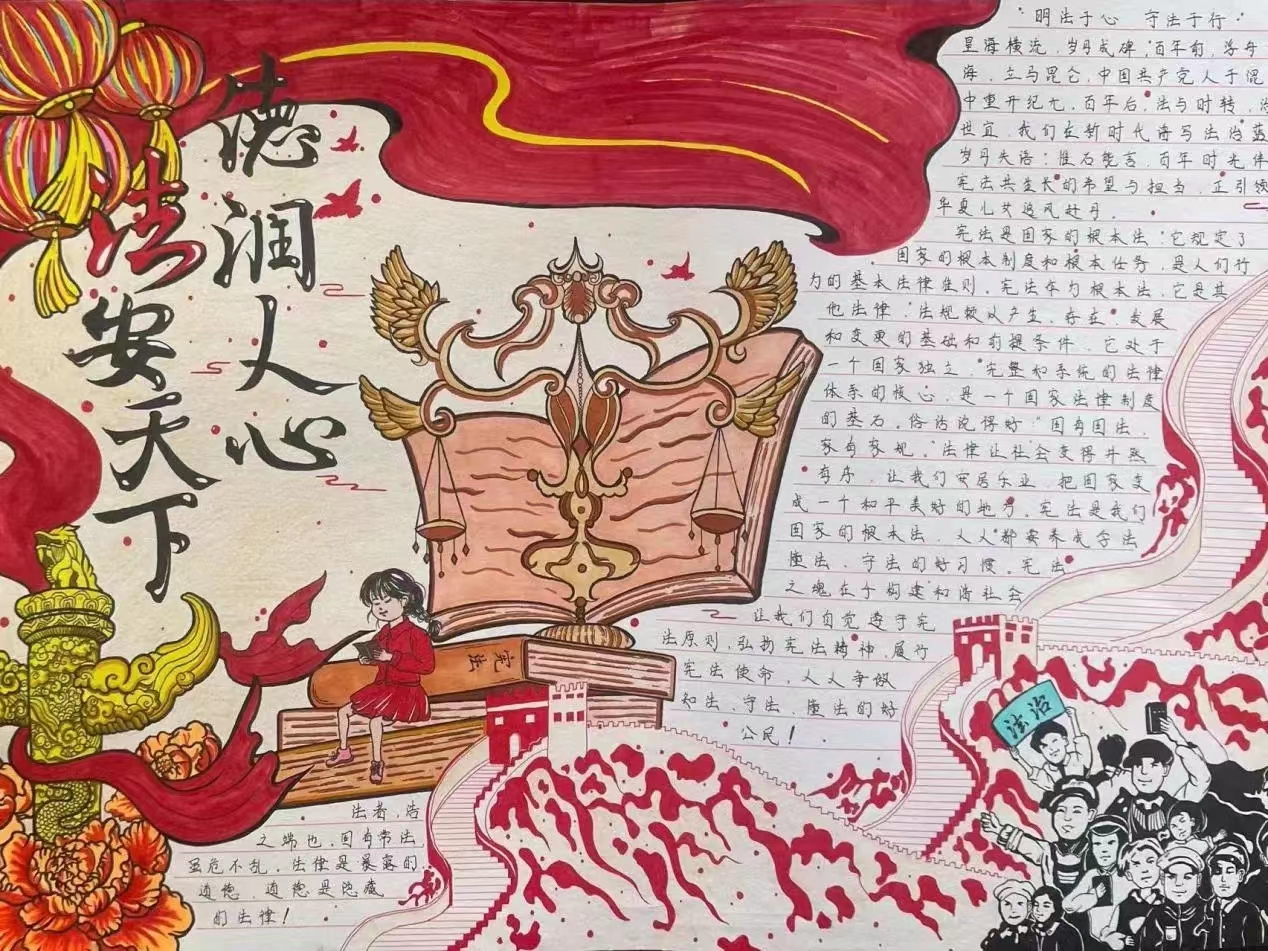 德润人心
法安天下
“明法于心 守法于行”
星海横流，岁月成碑，百年前，浮舟
海，立马昆仑，中国共产党人于混
中重开纪元，百年后，法与时转，治
世宜，我们在新时代谱写法治蓝
岁月失语：惟石能言，百年时光伴
宪法共生长的希望与担当，正引领
华夏儿女追风赶月。
宪法是国家的根本法，它规定了
国家的根本制度和根本任务，是人们行
为的基本法律准则。宪法作为根本法，它是其
他法律，法规赖以产生，存在，发展
和变更的基础和前提条件，它处于
一个国家独立，完整和系统的法律
体系的核心，是一个国家法律制度
的基石。俗话说得好“国有国法，
家有家规，”法律让社会变得井然
有序，让我们安居乐业，把国家变
成一个和平美好的地方，宪法是我们
国家的根本法，人人都要养成学法
懂法、守法的好习惯。宪法
之魂在于构建和谐社会
让我们自觉遵守宪
法原则，弘扬宪法精神，履行
宪法使命，人人争做
知法、守法、懂法的好
公民！
宪法
法治
法者，治
之端也，国有常法
虽危不乱，法律是暴露的
道德，道德是隐藏
的法律！